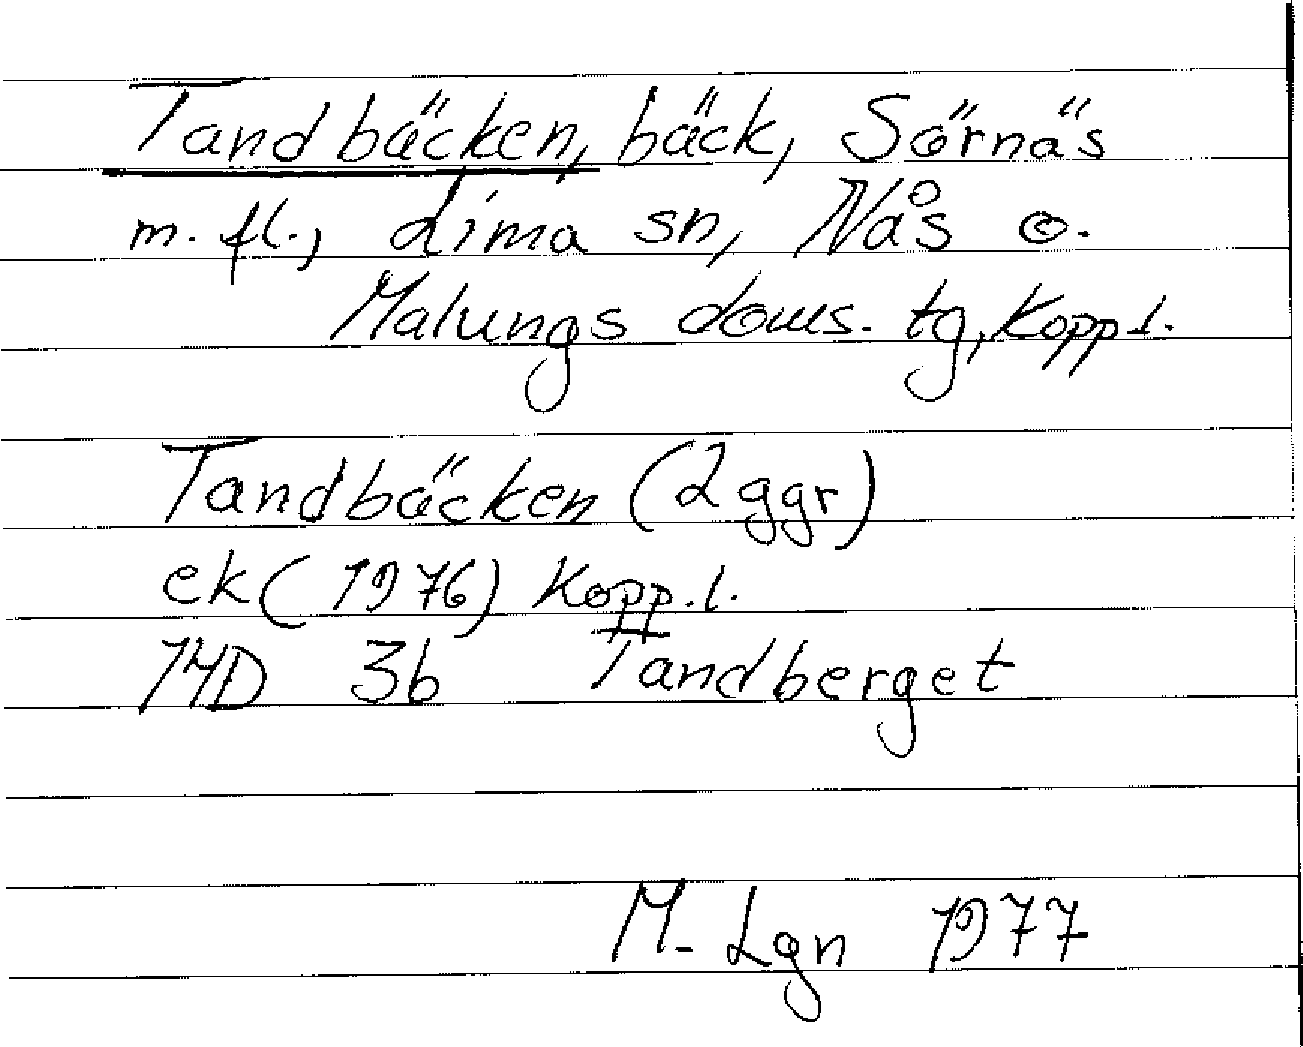 Tandbäcken, bäck, Sörnäs
m. fl., Lima sn, Nås o.
Malungs doms. tg, Kopp l.
Tandbäcken (2 ggr)
ek (1976) Kopp. l.
14D 3b Tandberget
M. Lgn 1977